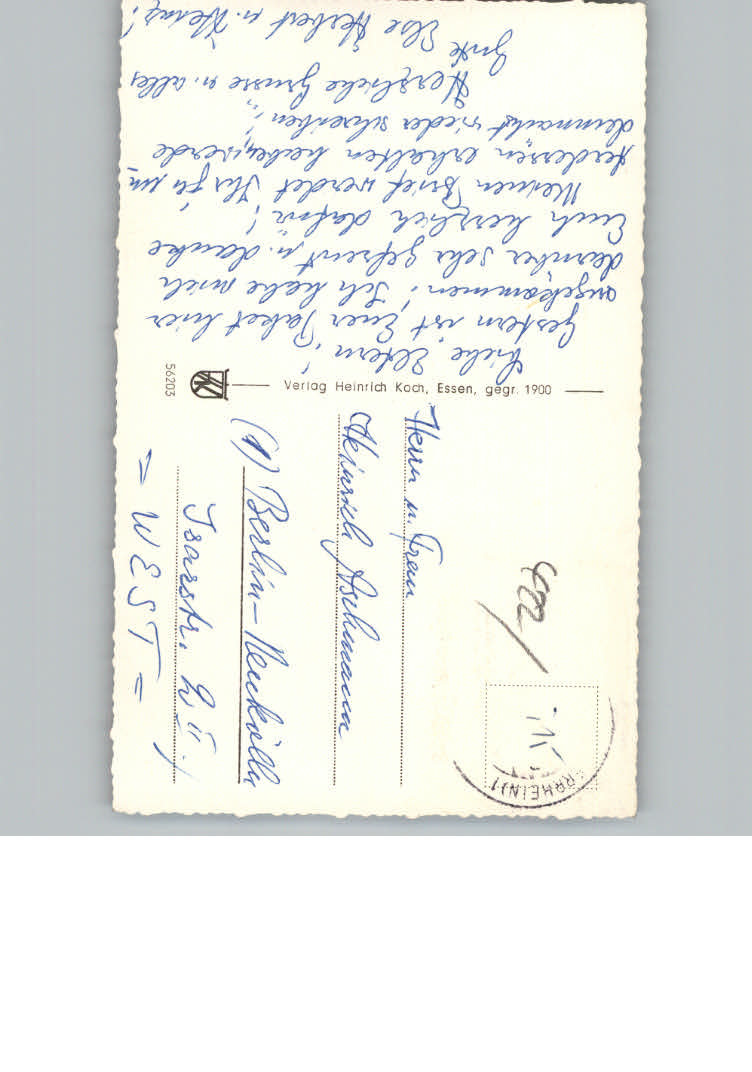 Liebe Eltern!
Gestern ist Euer Paket hier
angekommen! Ich habe mich
darüber sehr gefreut u. danke
Euch herzlich dafür!
Meinen Brief werdet Ihr ja in-
dessen erhalten haben, werde
demnächst wieder schreiben!
Herzliche Grüsse u. alles
Gute Else Herbert u. Heinz!
Verlag Heinrich Koch, Essen, gegr. 1900
56203
Herrn u. Frau
Heinrich Aschmann
(1) Berlin-Neukölln
Isarstr. 2 II.
= WEST =
422
RRHEIN)1